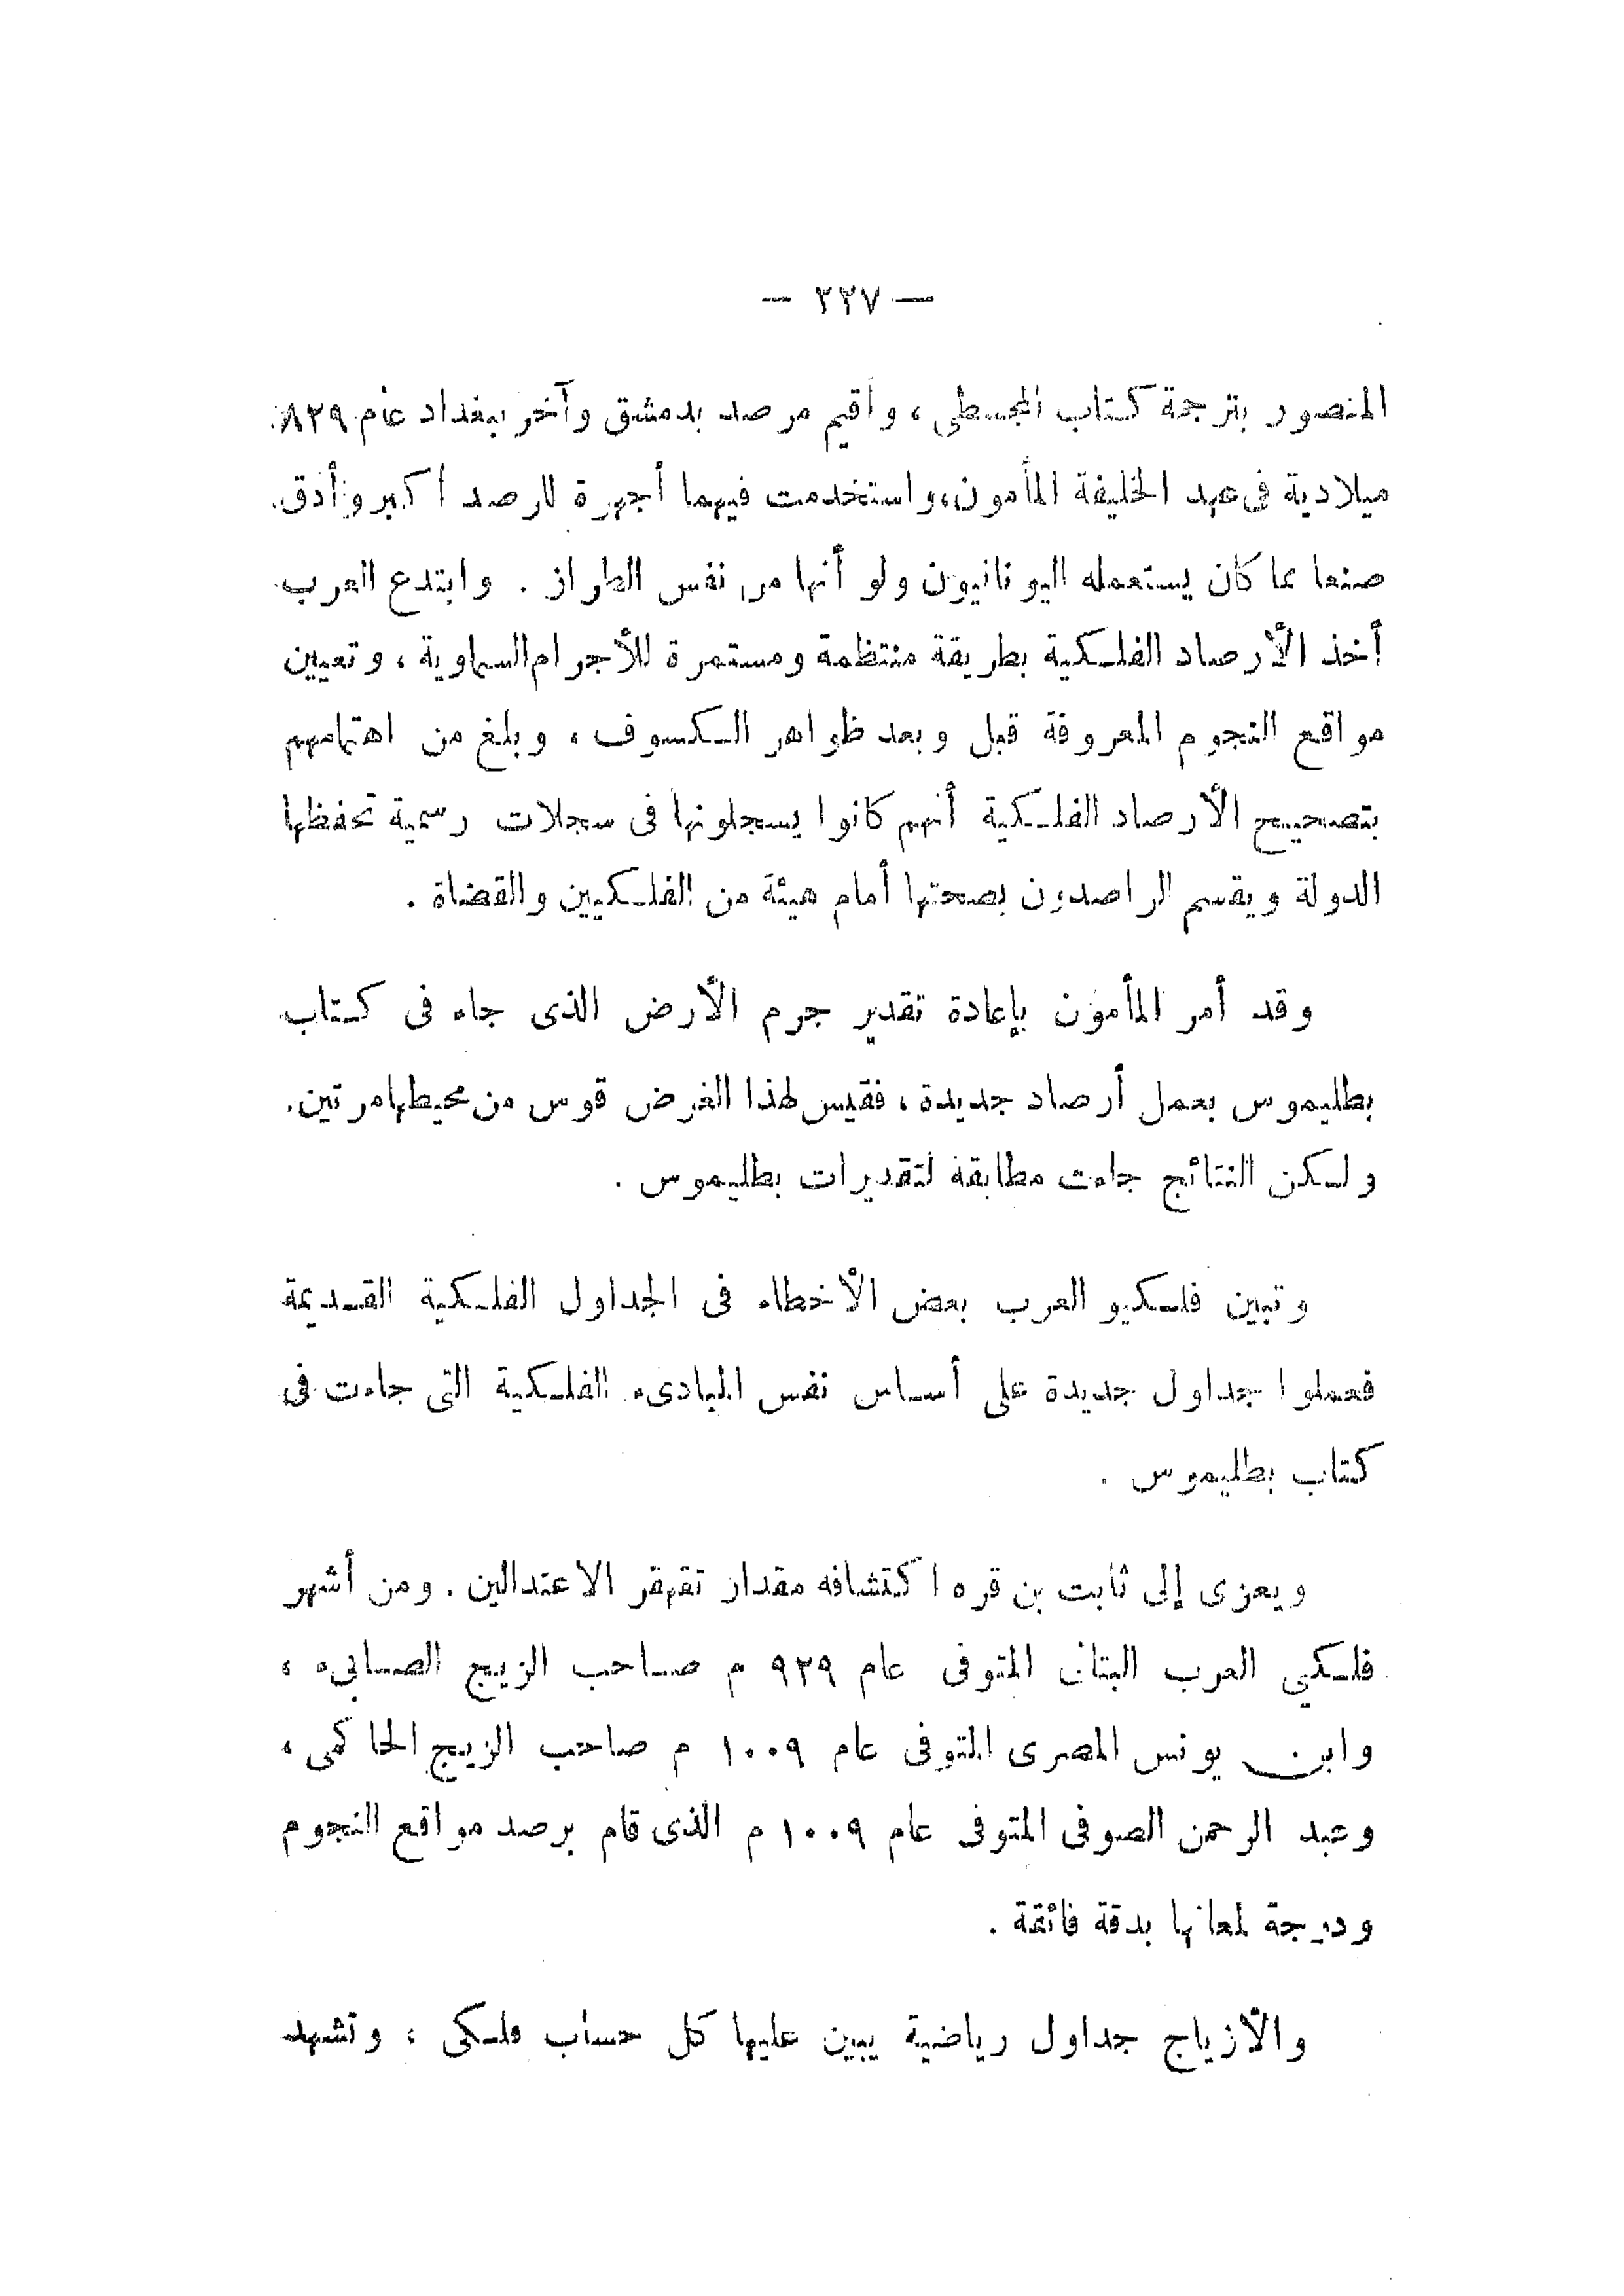 — ٢٢٧ —
المنصور بترجمة كتاب المجسطى ، وأقيم مرصد بدمشق وآخر ببغداد عام ٨٢٩
ميلادية فى عهد الخليفة المأمون، واستخدمت فيهما أجهزة للرصد أكبر وأدق
صنعا مما كان يستعمله اليونانيون ولو أنها من نفس الطراز . وابتدع العرب
أخذ الأرصاد الفلكية بطريقة منتظمة ومستمرة للأجرام السماوية ، وتعيين
مواقع النجوم المعروفة قبل وبعد ظواهر الكسوف ، وبلغ من اهتمامهم
بتصحيح الأرصاد الفلكية أنهم كانوا يسجلونها فى سجلات رسمية تحفظها
الدولة ويقسم الراصدون بصحتها أمام هيئة من الفلكيين والقضاة .
وقد أمر المأمون بإعادة تقدير جرم الأرض الذى جاء فى كتاب
بطليموس بعمل أرصاد جديدة ، فقيس لهذا الغرض قوس من محيطها مرتين.
ولكن النتائج جاءت مطابقة لتقديرات بطليموس .
وتبين فلكيو العرب بعض الأخطاء فى الجداول الفلكية القديمة
فعملوا جداول جديدة على أساس نفس المبادىء الفلكية التى جاءت فى
كتاب بطليموس .
ويعزى إلى ثابت بن قره اكتشافه مقدار تقهقر الاعتدالين . ومن أشهر
فلكيي العرب البتان المتوفى عام ٩٢٩ م صاحب الزيج الصابىء ،
وابن يونس المصرى المتوفى عام ١٠٠٩ م صاحب الزيج الحاكمى ،
وعبد الرحمن الصوفى المتوفى عام ١٠٠٩ م الذى قام برصد مواقع النجوم
ودرجة لمعانها بدقة فائقة .
والأزياج جداول رياضية يبين عليها كل حساب فلكى ، وتشهد